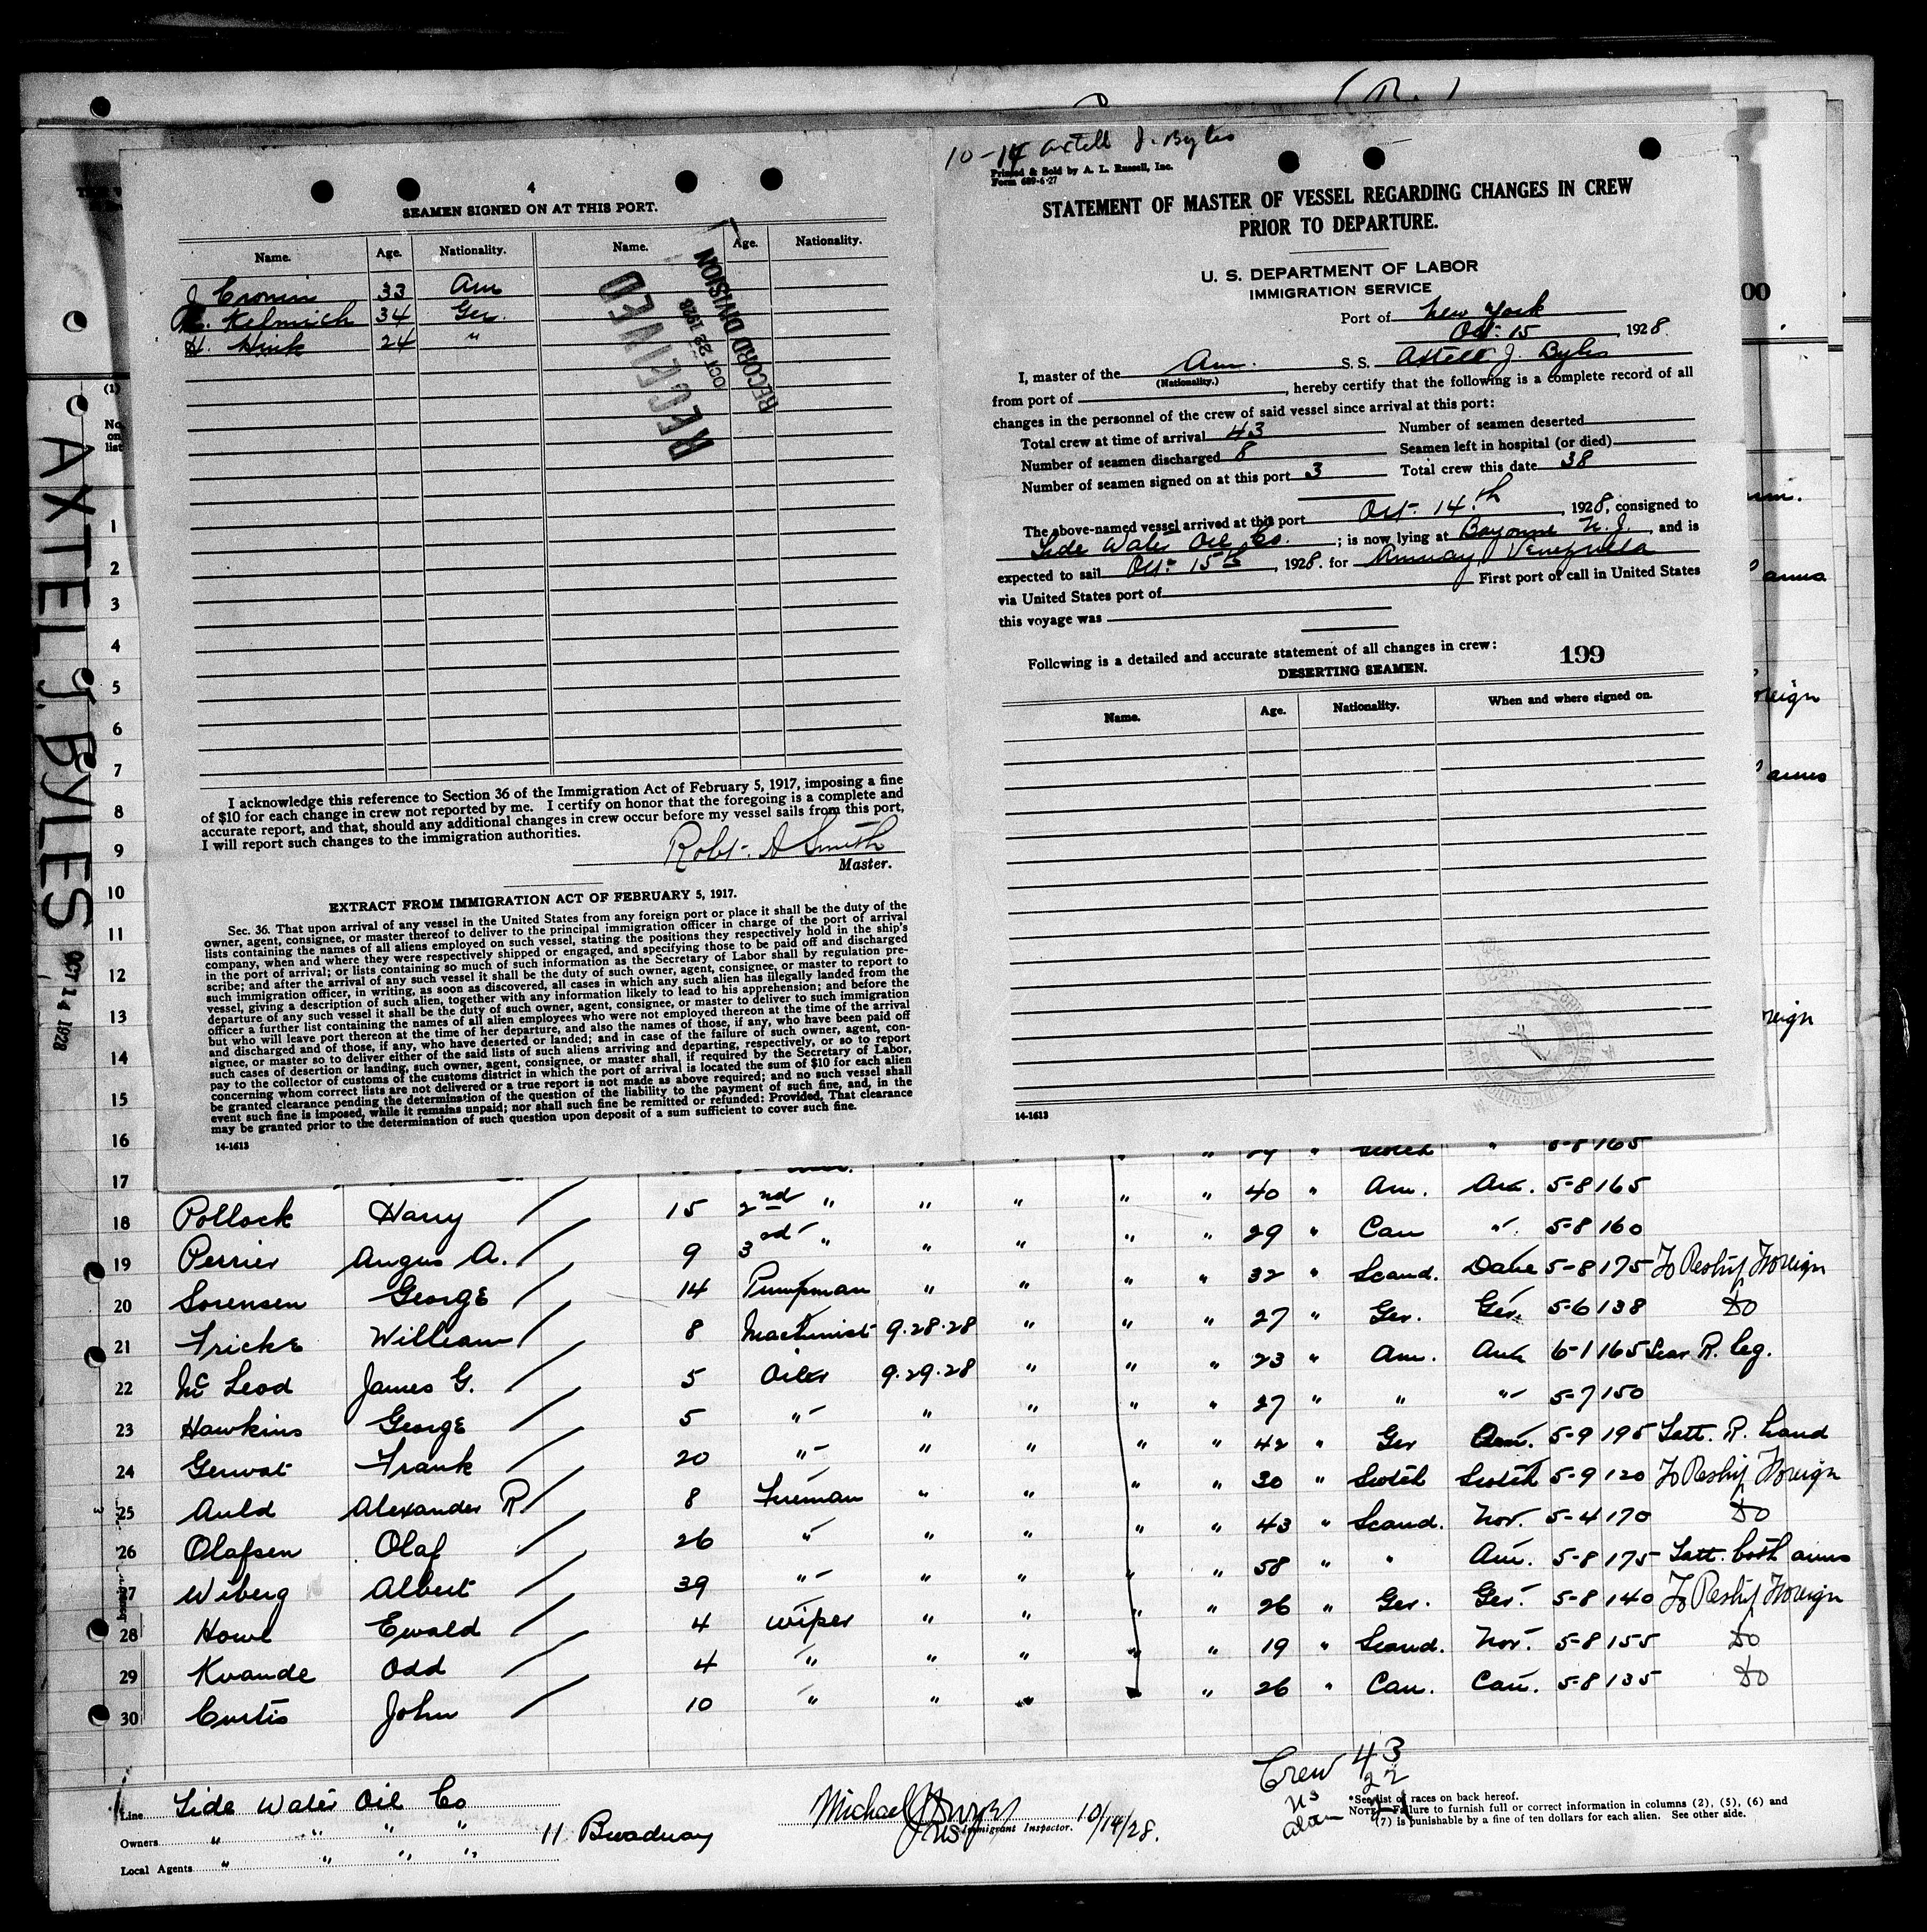 10-14 Axtell J. Byles
4
SEAMEN SIGNED ON AT THIS PORT.
Name. Age. Nationality. Name. Age. Nationality.
J Cronin 33 Am
Kelmich 34 Ger.
H. Hink 24 "
RECEIVED
OCT 22 1928
RECORD DIVISION
I acknowledge this reference to Section 36 of the Immigration Act of February 5, 1917, imposing a fine
of $10 for each change in crew not reported by me. I certify on honor that the foregoing is a complete and
accurate report, and that, should any additional changes in crew occur before my vessel sails from this port,
I will report such changes to the immigration authorities.
Robt. A Smith
Master.
EXTRACT FROM IMMIGRATION ACT OF FEBRUARY 5, 1917.
Sec. 36. That upon arrival of any vessel in the United States from any foreign port or place it shall be the duty of the
owner, agent, consignee, or master thereof to deliver to the principal immigration officer in charge of the port of arrival
lists containing the names of all aliens employed on such vessel, stating the positions they respectively hold in the ship's
company, when and where they were respectively shipped or engaged, and specifying those to be paid off and discharged
in the port of arrival; or lists containing so much of such information as the Secretary of Labor shall by regulation pre-
scribe; and after the arrival of any such vessel it shall be the duty of such owner, agent, consignee, or master to report to
such immigration officer, in writing, as soon as discovered, all cases in which any such alien has illegally landed from the
vessel, giving a description of such alien, together with any information likely to lead to his apprehension; and before the
departure of any such vessel it shall be the duty of such owner, agent, consignee, or master to deliver to such immigration
officer a further list containing the names of all alien employees who were not employed thereon at the time of the arrival
but who will leave port thereon at the time of her departure, and also the names of those, if any, who have been paid off
and discharged and of those, if any, who have deserted or landed; and in case of the failure of such owner, agent, con-
signee, or master so to deliver either of the said lists of such aliens arriving and departing, respectively, or so to report
such cases of desertion or landing, such owner, agent, consignee, or master shall, if required by the Secretary of Labor,
pay to the collector of customs of the customs district in which the port of arrival is located the sum of $10 for each alien
concerning whom correct lists are not delivered or a true report is not made as above required; and no such vessel shall
be granted clearance pending the determination of the question of the liability to the payment of such fine, and, in the
event such fine is imposed, while it remains unpaid; nor shall such fine be remitted or refunded: Provided, That clearance
may be granted prior to the determination of such question upon deposit of a sum sufficient to cover such fine.
14-1613
Printed & Sold by A. L. Russell, Inc.
Form 689-6-27
STATEMENT OF MASTER OF VESSEL REGARDING CHANGES IN CREW
PRIOR TO DEPARTURE.
U. S. DEPARTMENT OF LABOR
IMMIGRATION SERVICE
Port of New York
Oct. 15, 1928.
I, master of the Am. S. S. Axtell J. Byles
(Nationality.)
from port of , hereby certify that the following is a complete record of all
changes in the personnel of the crew of said vessel since arrival at this port:
Total crew at time of arrival 43 Number of seamen deserted
Number of seamen discharged 8 Seamen left in hospital (or died)
Number of seamen signed on at this port 3 Total crew this date 38
The above-named vessel arrived at this port Oct. 14th, 1928, consigned to
Tide Water Oil Co. ; is now lying at Bayonne N. J., and is
expected to sail Oct. 15th, 1928. for Amuay, Venezuela
via United States port of First port of call in United States
this voyage was
Following is a detailed and accurate statement of all changes in crew: 199
DESERTING SEAMEN.
Name. Age. Nationality. When and where signed on.
14-1613
AXTEL J. BYLES
OCT 14 1928
(1)
No. on list
1
2
3
4
5
6
7
8
9
10
11
12
13
14
15
16
17
18 Pollock Harry 15 2nd " " " " " 40 " Am. Am. 5-8 165
19 Perrier Angus A. 9 3rd " " " " " 29 " Can " 5-8 160
20 Sorensen George 14 Pumpman " " " " 32 " Scand. Dane 5-8 175 To Reship Foreign
21 Fricke William 8 Machinist 9.28.28 " " " 27 " Ger. Ger. 5-6 138 Do
22 McLeod James G. 5 Oiler 9.29.28 " " " 23 " Am. Am 6-1 165 Scar R. leg.
23 Hawkins George 5 " " " " " 27 " " " 5-7 150
24 Gerwat Frank 20 " " " " " 42 " Ger Am. 5-9 195 Tatt. R. hand
25 Auld Alexander R 8 Fireman " " " " 30 " Scotch Scotch 5-9 120 To Reship Foreign
26 Olafsen Olaf 26 " " " " " 43 " Scand. Nor. 5-4 170 Do
27 Wiberg Albert 39 " " " " " 58 " " Am. 5-8 175 Tatt. both arms
28 Howe Ewald 4 Wiper " " " " 26 " Ger. Ger. 5-8 140 To Reship Foreign
29 Kvande Odd 4 " " " " " 19 " Scand. Nor. 5-8 155 Do
30 Curtis John 10 " " " " " 26 " Can. Can. 5-8 135 Do
Crew 43
US 22
Alien 21
Line Tide Water Oil Co
Owners " " " " 11 Broadway
Local Agents " " " "
Immigrant Inspector. 10/14/28.
*See list of races on back hereof.
NOTE.—Failure to furnish full or correct information in columns (2), (5), (6) and
(7) is punishable by a fine of ten dollars for each alien. See other side.